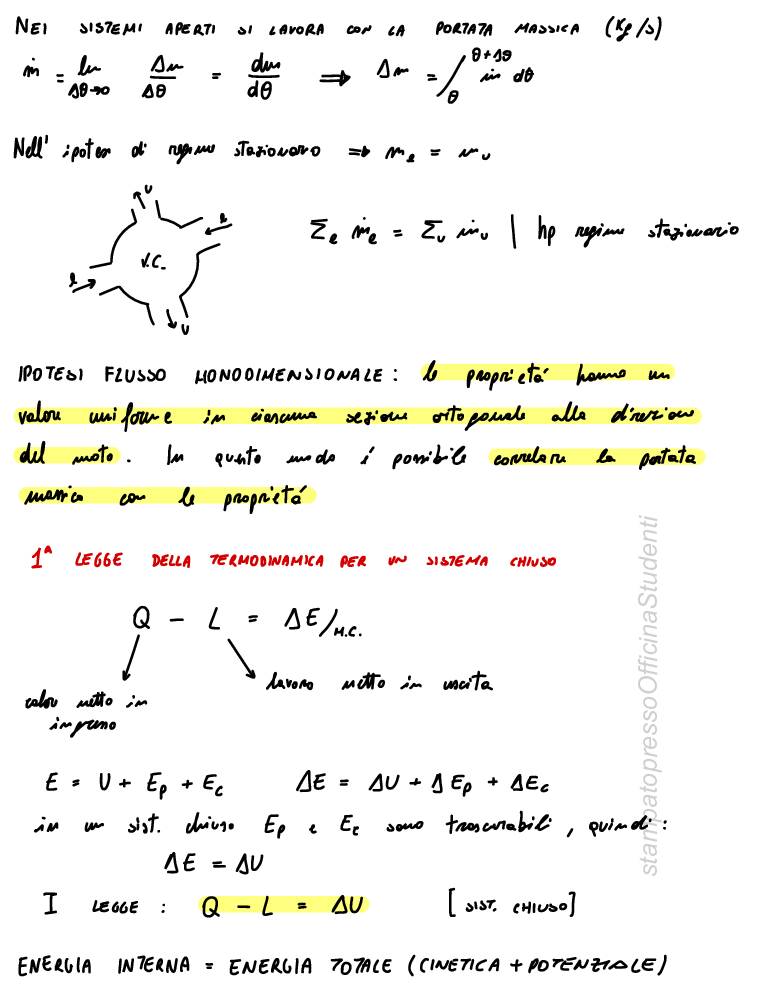 NEI SISTEMI APERTI SI LAVORA CON LA PORTATA MASSICA (Kg/s)
ṁ = lim Δθ→0 Δm/Δθ = dm/dθ ⟹ Δm = ∫θ^θ+Δθ ṁ dθ
Nell' ipotesi di regime stazionario ⟹ me = mu
u
e
V.C.
e
u
Σe ṁe = Σu ṁu | hp regime stazionario
IPOTESI FLUSSO MONODIMENSIONALE : le proprietá hanno un
valore uniforme in ciascuna sezione ortogonale alla direzione
del moto. In questo modo é possibile correlare la portata
massica con le proprietá
1ª LEGGE DELLA TERMODINAMICA PER UN SISTEMA CHIUSO
Q - L = ΔE/M.C.
lavoro netto in uscita
calore netto in
ingresso
E = U + Ep + Ec ΔE = ΔU + ΔEp + ΔEc
in un sist. chiuso Ep e Ec sono trascurabili, quindi:
ΔE = ΔU
I LEGGE : Q - L = ΔU [SIST. CHIUSO]
ENERGIA INTERNA = ENERGIA TOTALE (CINETICA + POTENZIALE)
stampatopressoOfficinaStudenti